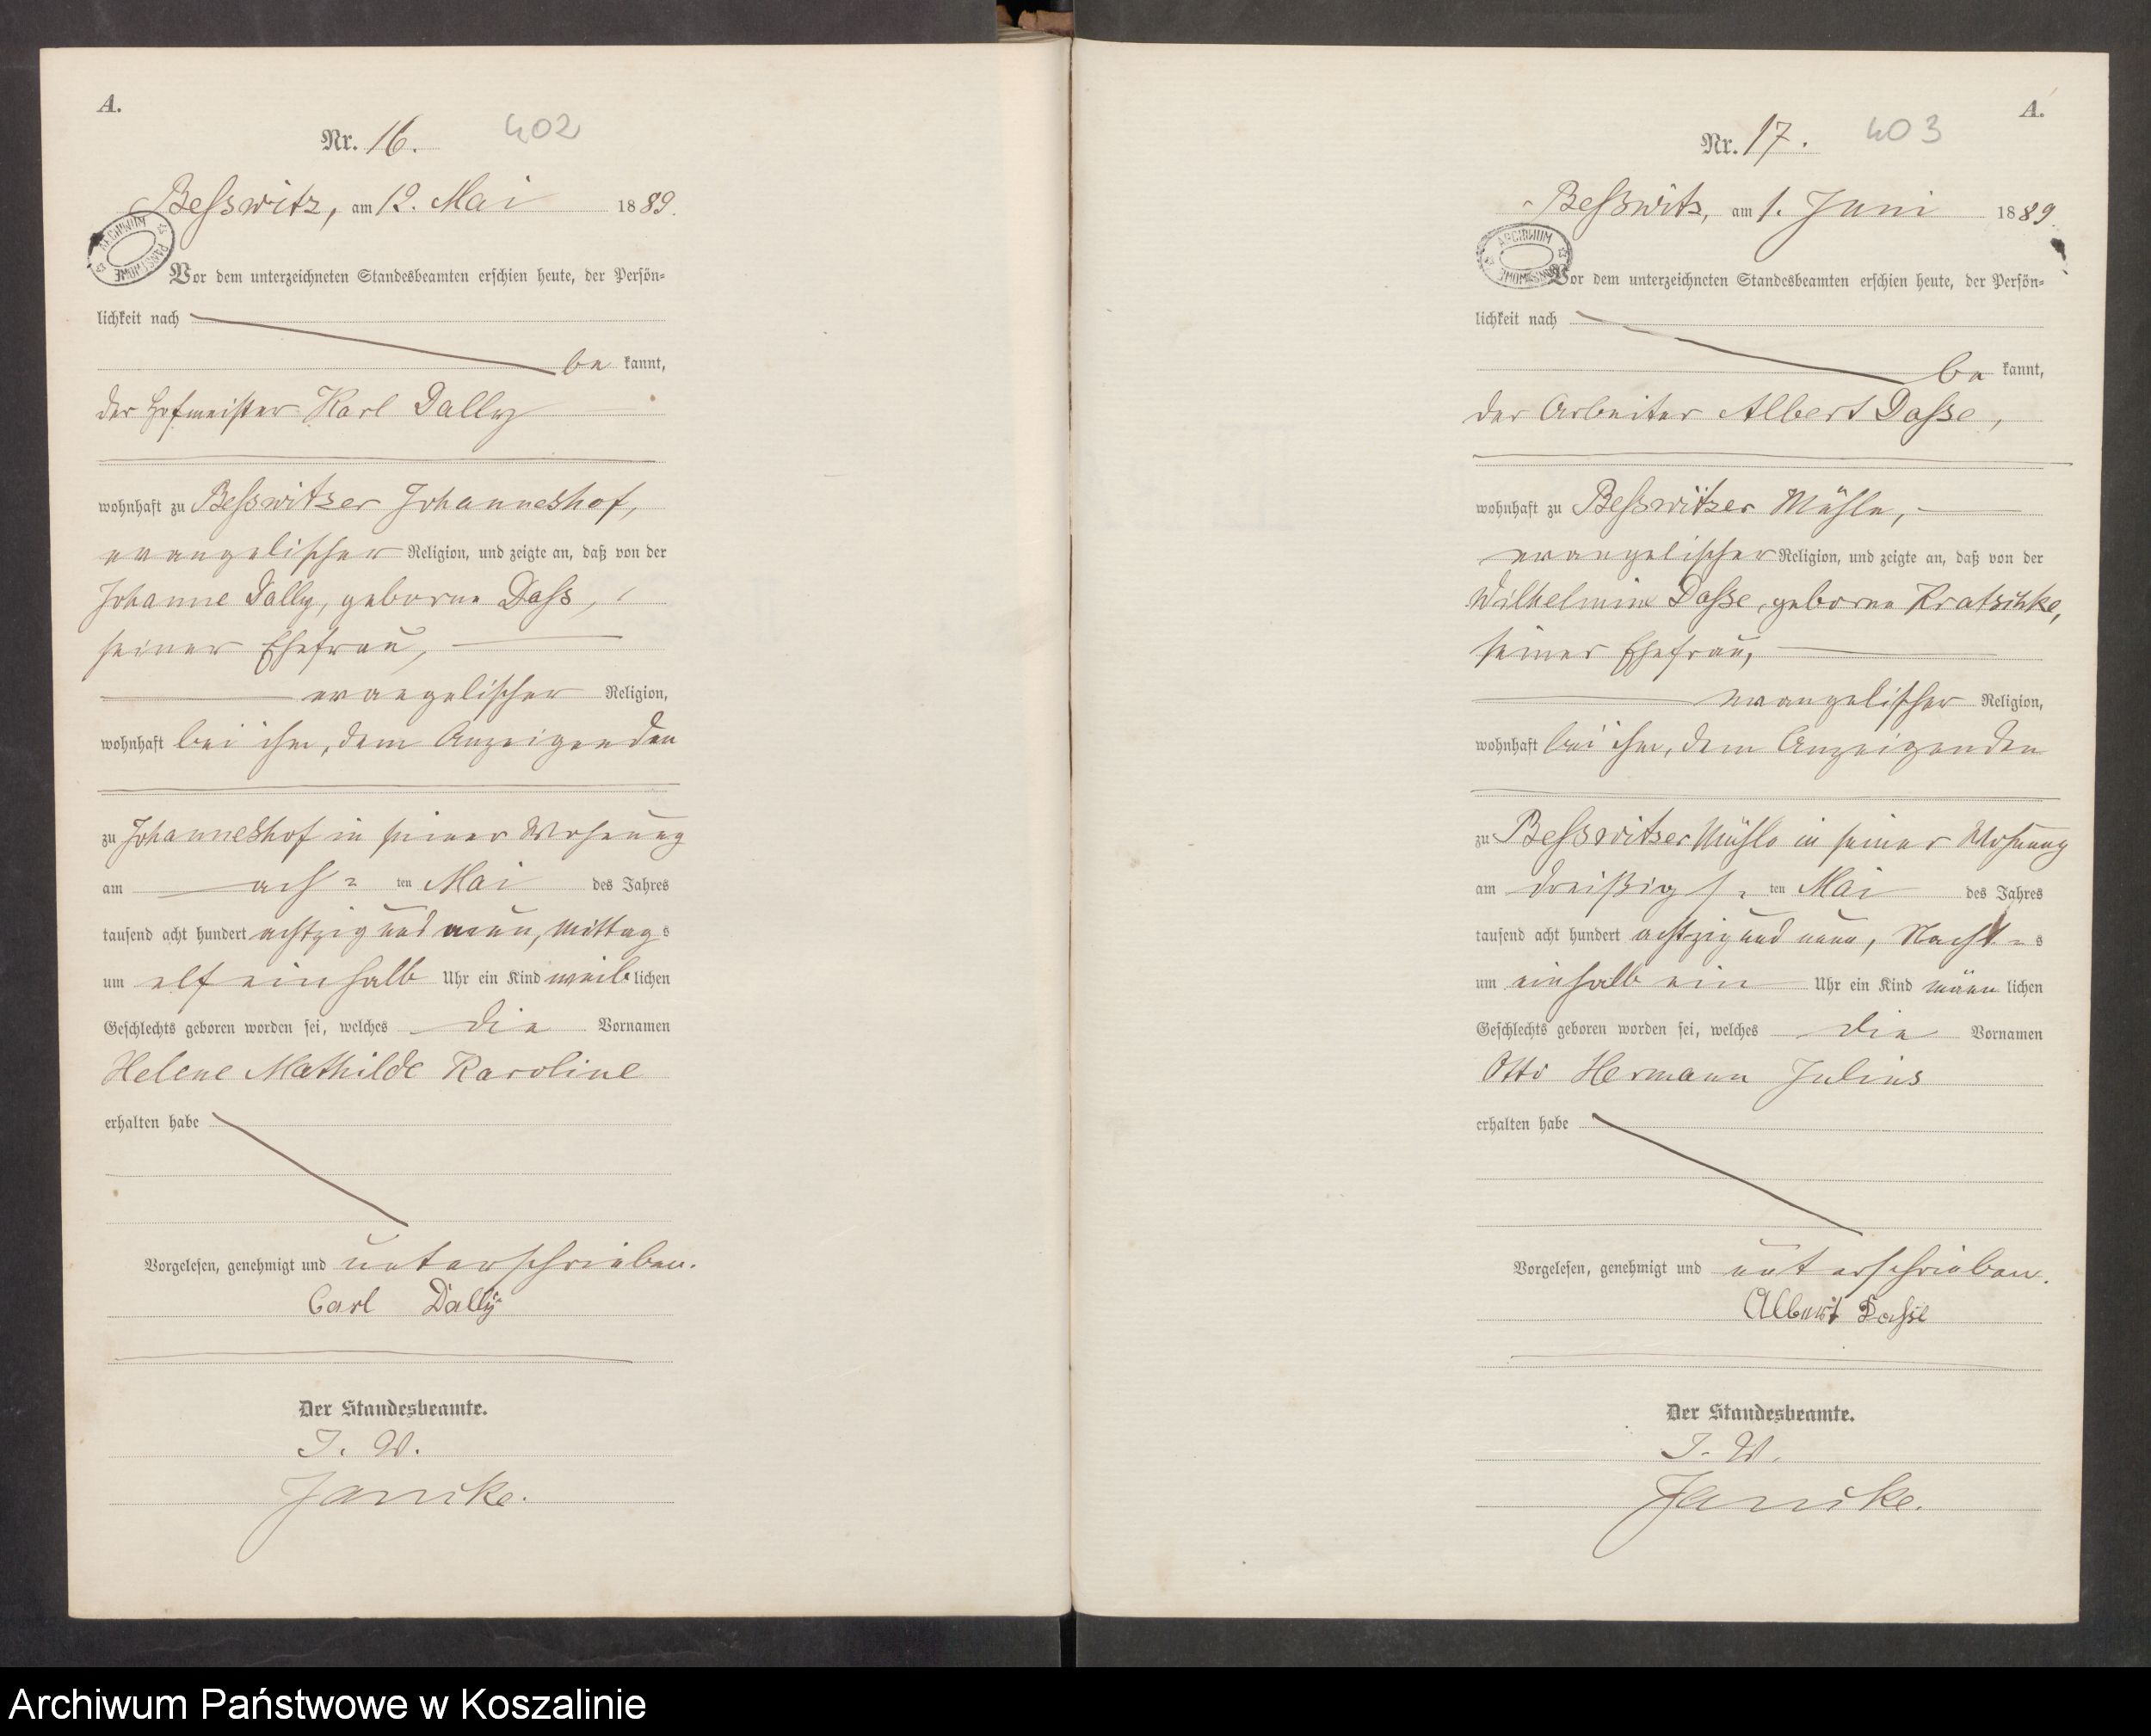 A.
Nr. 16. 402
Besswitz, am 12. Mai 1889.
ARCHIWUM PAŃSTWOWE
Vor dem unterzeichneten Standesbeamten erschien heute, der Persön-
lichkeit nach
be kannt,
der Hofmeister Karl Dally
wohnhaft zu Besswitzer Johanneshof,
evangelischer Religion, und zeigte an, daß von der
Johanne Dally, geborne Dass,
seiner Ehefrau,
evangelischer Religion,
wohnhaft bei ihm, dem Anzeigenden
zu Johanneshof in seiner Wohnung
am ach- ten Mai des Jahres
tausend acht hundert achtzig und neun, Mittags
um elf einhalb Uhr ein Kind weib lichen
Geschlechts geboren worden sei, welches die Vornamen
Helene Mathilde Karoline
erhalten habe
Vorgelesen, genehmigt und unterschrieben.
Carl Dally
Der Standesbeamte.
I. V.
Janike.
A.
Nr. 17. 403
Besswitz, am 1. Juni 1889.
ARCHIWUM PAŃSTWOWE
Vor dem unterzeichneten Standesbeamten erschien heute, der Persön-
lichkeit nach
be kannt,
der Arbeiter Albert Dasse,
wohnhaft zu Besswitzer Mühle,
evangelischer Religion, und zeigte an, daß von der
Wilhelmine Dasse, geborne Kratschke,
seiner Ehefrau,
evangelischer Religion,
wohnhaft bei ihm, dem Anzeigenden
zu Besswitzer Mühle in seiner Wohnung
am dreißigs- ten Mai des Jahres
tausend acht hundert achtzig und neun, Nacht-s
um einhalb ein Uhr ein Kind männ lichen
Geschlechts geboren worden sei, welches die Vornamen
Otto Hermann Julius
erhalten habe
Vorgelesen, genehmigt und unterschrieben.
Albert Dasse
Der Standesbeamte.
I. V.
Janike.
Archiwum Państwowe w Koszalinie